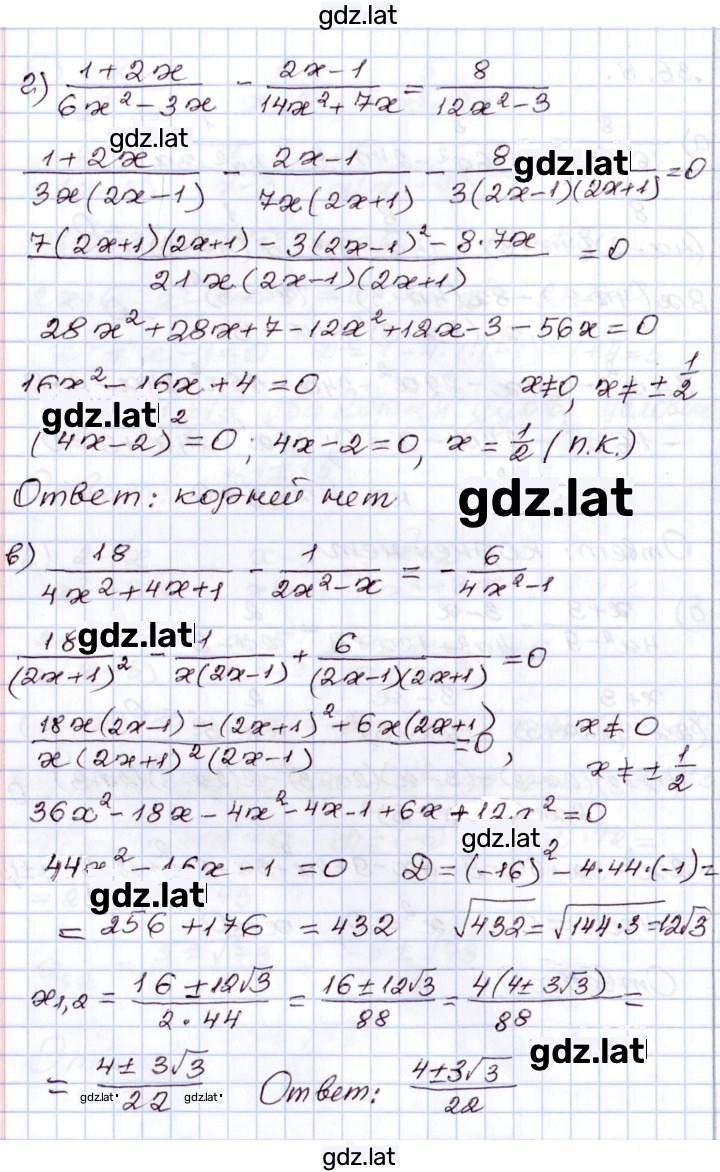 gdz.lat
г) (1+2x)/(6x²-3x) - (2x-1)/(14x²+7x) = 8/(12x²-3)
gdz.lat
(1+2x)/(3x(2x-1)) - (2x-1)/(7x(2x+1)) - 8/(3(2x-1)(2x+1)) = 0
gdz.lat
(7(2x+1)(2x+1) - 3(2x-1)² - 8·7x)/(21x(2x-1)(2x+1)) = 0
28x² + 28x + 7 - 12x² + 12x - 3 - 56x = 0
16x² - 16x + 4 = 0 x≠0, x≠ ± 1/2
gdz.lat
(4x-2)² = 0; 4x-2=0, x = 1/2 (п.к.)
Ответ: корней нет
gdz.lat
в) 18/(4x²+4x+1) - 1/(2x²-x) = - 6/(4x²-1)
gdz.lat
18/(2x+1)² - 1/(x(2x-1)) + 6/((2x-1)(2x+1)) = 0
(18x(2x-1) - (2x+1)² + 6x(2x+1))/(x(2x+1)²(2x-1)) = 0, x≠0
x≠ ± 1/2
36x² - 18x - 4x² - 4x - 1 + 6x + 12x² = 0
gdz.lat
44x² - 16x - 1 = 0 D = (-16)² - 4·44·(-1) =
gdz.lat
= 256 + 176 = 432 √432 = √144·3 = 12√3
x1,2 = (16 ± 12√3)/(2·44) = (16 ± 12√3)/88 = (4(4 ± 3√3))/88 =
gdz.lat
= (4 ± 3√3)/22 Ответ: (4±3√3)/22
gdz.lat gdz.lat
gdz.lat